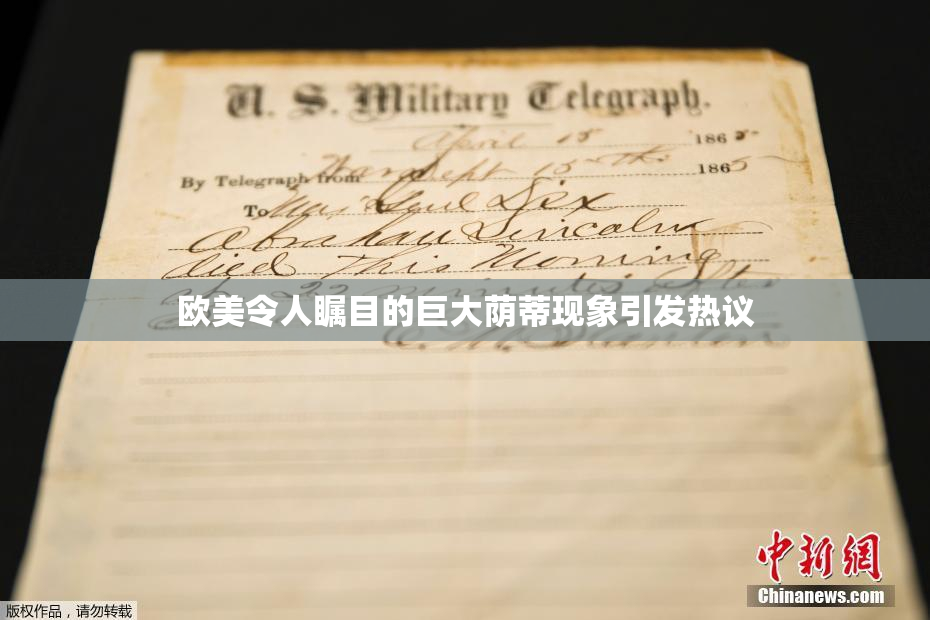 U. S. Military Telegraph.
April 15 1865
By Telegraph from War Dept 15th 1865
To Maj Genl Dix
Abraham Lincoln
died This Morning
at 22 minutes after
欧美令人瞩目的巨大荫蒂现象引发热议
E. M. Stanton
中新网
Chinanews.com
版权作品，请勿转载